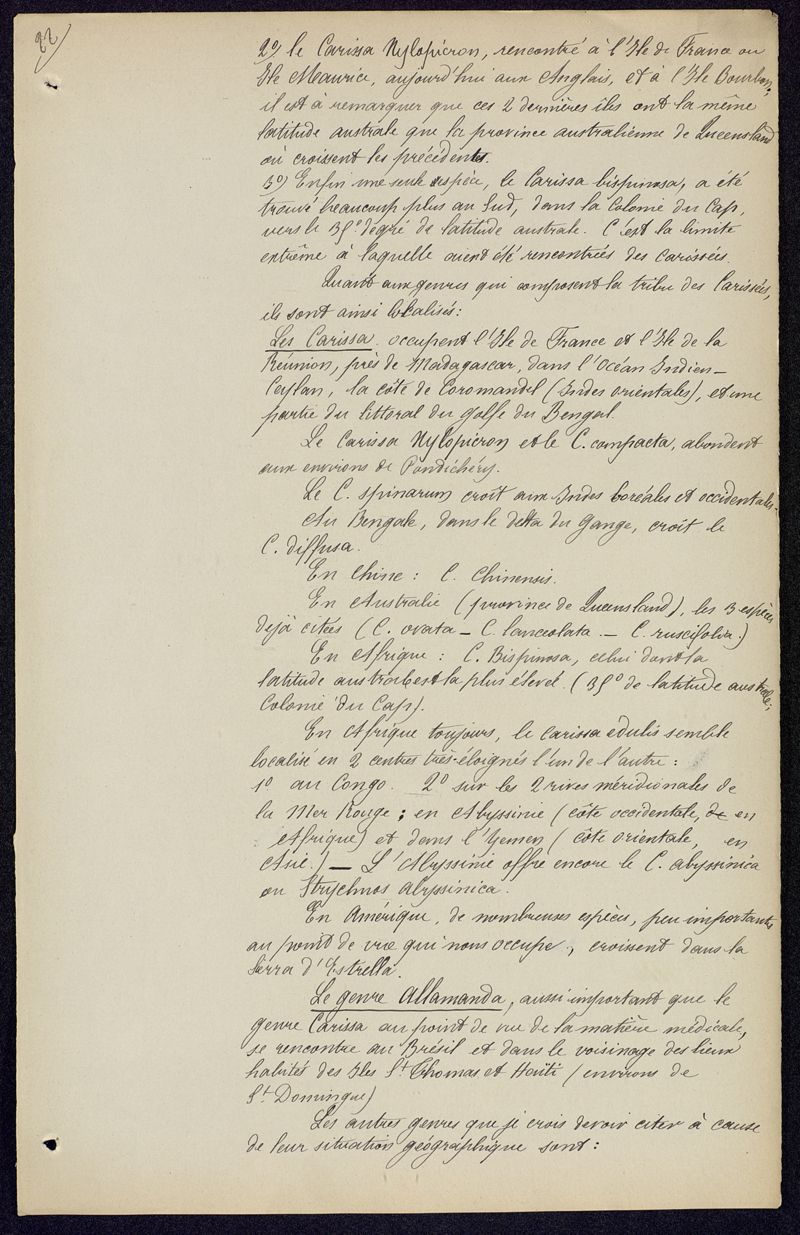 22
2º) le Carissa Xylopicron, rencontré à l'Ile de France ou
Ile Maurice, aujourd'hui aux Anglais, et à l'Ile Bourbon;
il est à remarquer que ces 2 dernières iles ont la même
latitude australe que la province australienne de Queensland
où croissent les précédentes.
3º) Enfin une seule espèce, le Carissa bispinosa, a été
trouvé beaucoup plus au Sud, dans la Colonie du Cap,
vers le 35º degré de latitude australe. C'est la limite
extrême à laquelle aient été rencontrées des carissées.
Quant aux genres qui composent la tribu des Carissées,
ils sont ainsi localisés:
Les Carissa. occupent l'Ile de France et l'Ile de la
Réunion, près de Madagascar, dans l'Océan Indien –
Ceylan, la côte de Coromandel (Indes orientales), et une
partie du littoral du golfe du Bengal.
Le Carissa Xylopicron et le C. compacta, abondent
aux environs de Pondichéry.
Le C. spinarum croît aux Indes boréales et occidentales.
Au Bengale, dans le delta du Gange, croît le
C. diffusa.
En Chine: C. Chinensis.
En Australie (province de Queensland), les 3 espèces
déjà citées (C. ovata – C. lanceolata. – C. ruscifolia.)
En Afrique: C. Bispinosa, celui dont la
latitude australe est la plus élevée. (35º de latitude australe;
Colonie du Cap).
En Afrique toujours, le carissa edulis semble
localisé en 2 centres très-éloignés l'un de l'autre:
1º au Congo. 2º sur les 2 rives méridionales de
la Mer Rouge; en Abyssinie (côte occidentale, de en
Afrique) et dans l'Yemen (côte orientale, en
Asie.) – L'Abyssinie offre encore le C. abyssinica
ou Strychnos abyssinica.
En Amérique, de nombreuses espèces, peu importantes
au point de vue qui nous occupe, croissent dans la
Serra d'Estrella.
Le genre Allamanda, aussi important que le
genre Carissa au point de vue de la matière médicale,
se rencontre au Brésil et dans le voisinage des lieux
habités des Iles St Thomas et Haïti (environs de
St Domingue)
Les autres genres que je crois devoir citer à cause
de leur situation géographique sont: